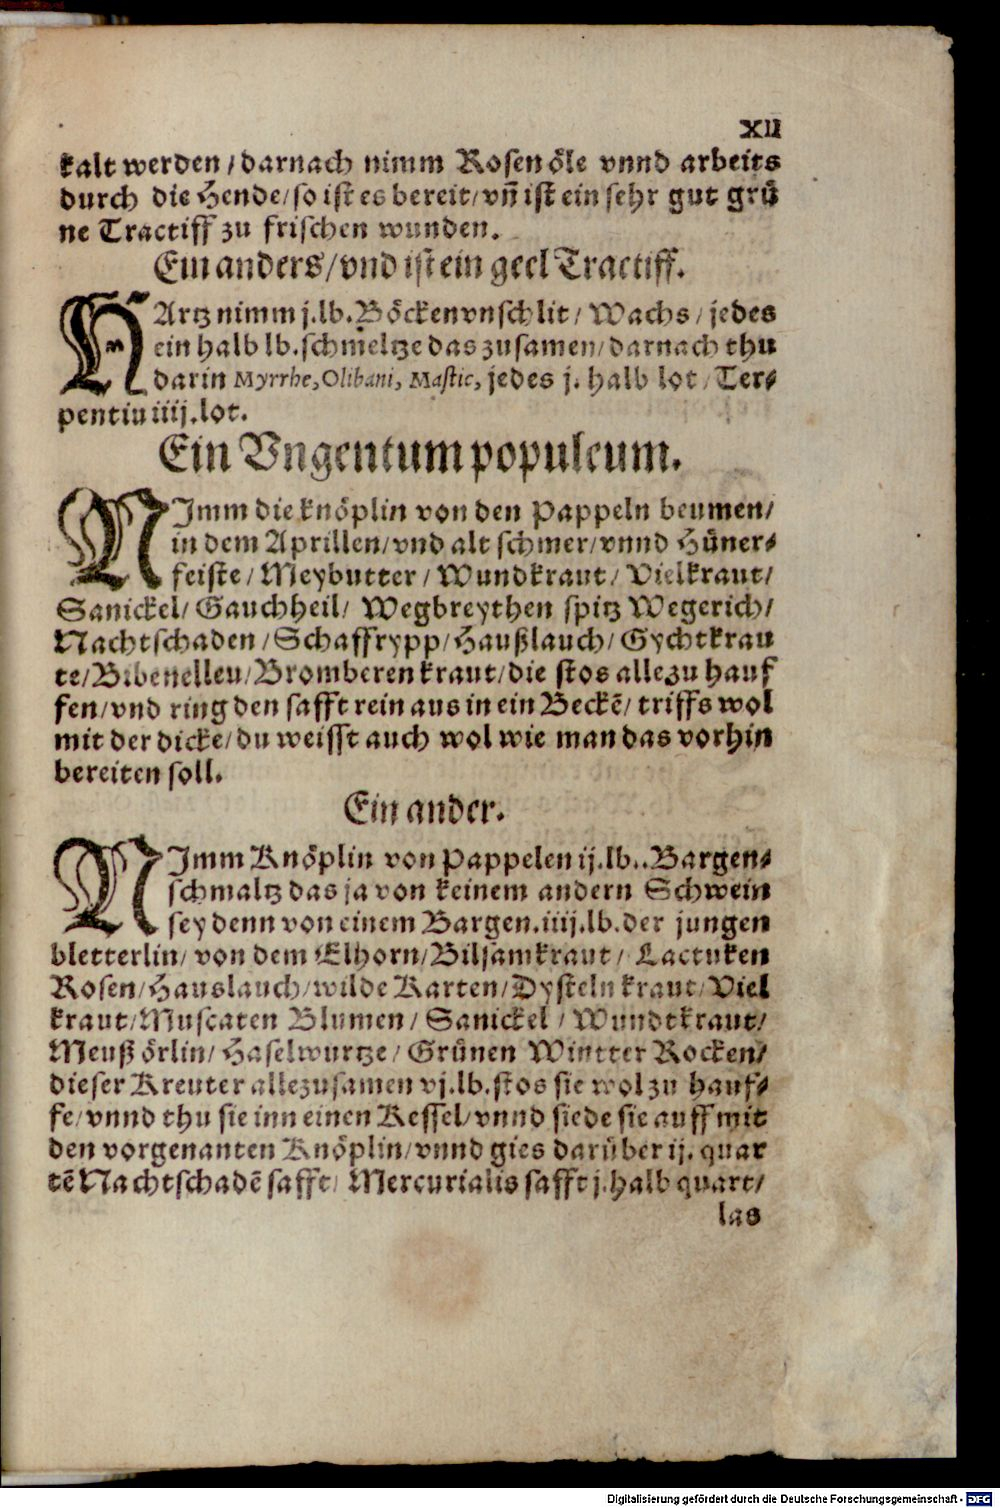 XII
kalt werden / darnach nimm Rosen öle vnnd arbeits
durch die Hende/ so ist es bereit/ vñ ist ein sehr gut grü
ne Tractiff zu frischen wunden.
Ein anders/ vnd ist ein geel Tractiff.
HArtz nimm j.lb. Böckenvnschlit/ Wachs/ jedes
ein halb lb. schmeltze das zusamen/ darnach thu
darin Myrrhe, Olibani, Mastic, jedes j. halb lot/ Ter-
pentin iiij.lot.
Ein Vngentum populeum.
NImm die knöplin von den Pappeln beumen/
in dem Aprillen/ vnd alt schmer/ vnnd Hüner-
feiste/ Meybutter/ Wundkraut/ Vielkraut/
Sanickel/ Gauchheil/ Wegbreythen spitz Wegerich/
Nachtschaden/ Schaffrypp/ Haußlauch/ Gychtkrau
te/ Bibenellen/ Bromberen kraut/ die stos alle zu hauf
fen/ vnd ring den safft rein aus in ein Beckē/ triffs wol
mit der dicke/ du weisst auch wol wie man das vorhin
bereiten soll.
Ein ander.
NImm Knöplin von Pappelen ij.lb.. Bargen-
schmaltz das ja von keinem andern Schwein
sey denn von einem Bargen. iiij.lb. der jungen
bletterlin/ von dem Elhorn/ Bilsamkraut/ Lactuken
Rosen/ Hauslauch/ wilde Karten/ Dysteln kraut/ Viel
kraut/ Muscaten Blumen/ Sanickel/ Wundtkraut/
Meuß örlin/ Haselwurtze/ Grünen Wintter Rocken/
dieser Kreuter alle zusamen vj.lb. stos sie wol zu hauf-
fe/ vnnd thu sie inn einen Kessel/ vnnd siede sie auff mit
den vorgenanten Knöplin/ vnnd gies darüber ij. quar
tē Nachtschadē safft/ Mercurialis safft j. halb quart/
las
Digitalisierung gefördert durch die Deutsche Forschungsgemeinschaft - DFG